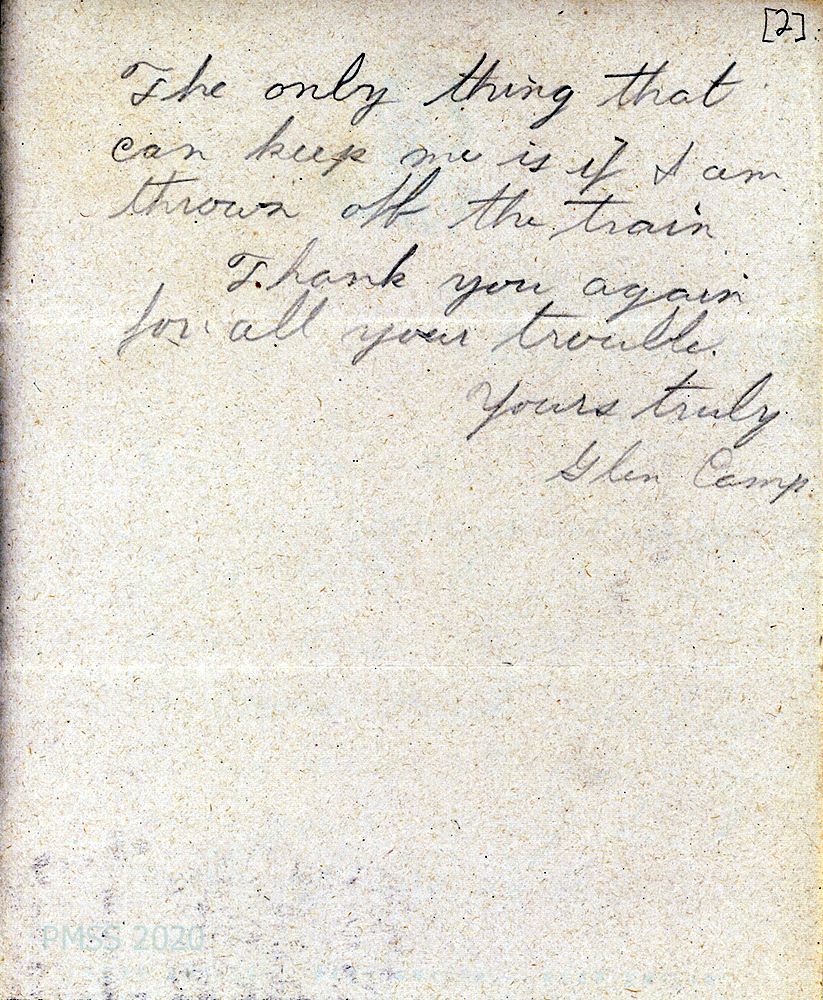 [2].
The only thing that
can keep me is if I am
thrown off the train
Thank you again
for all your trouble.
Yours truly
Glen Camp
PMSS 2020